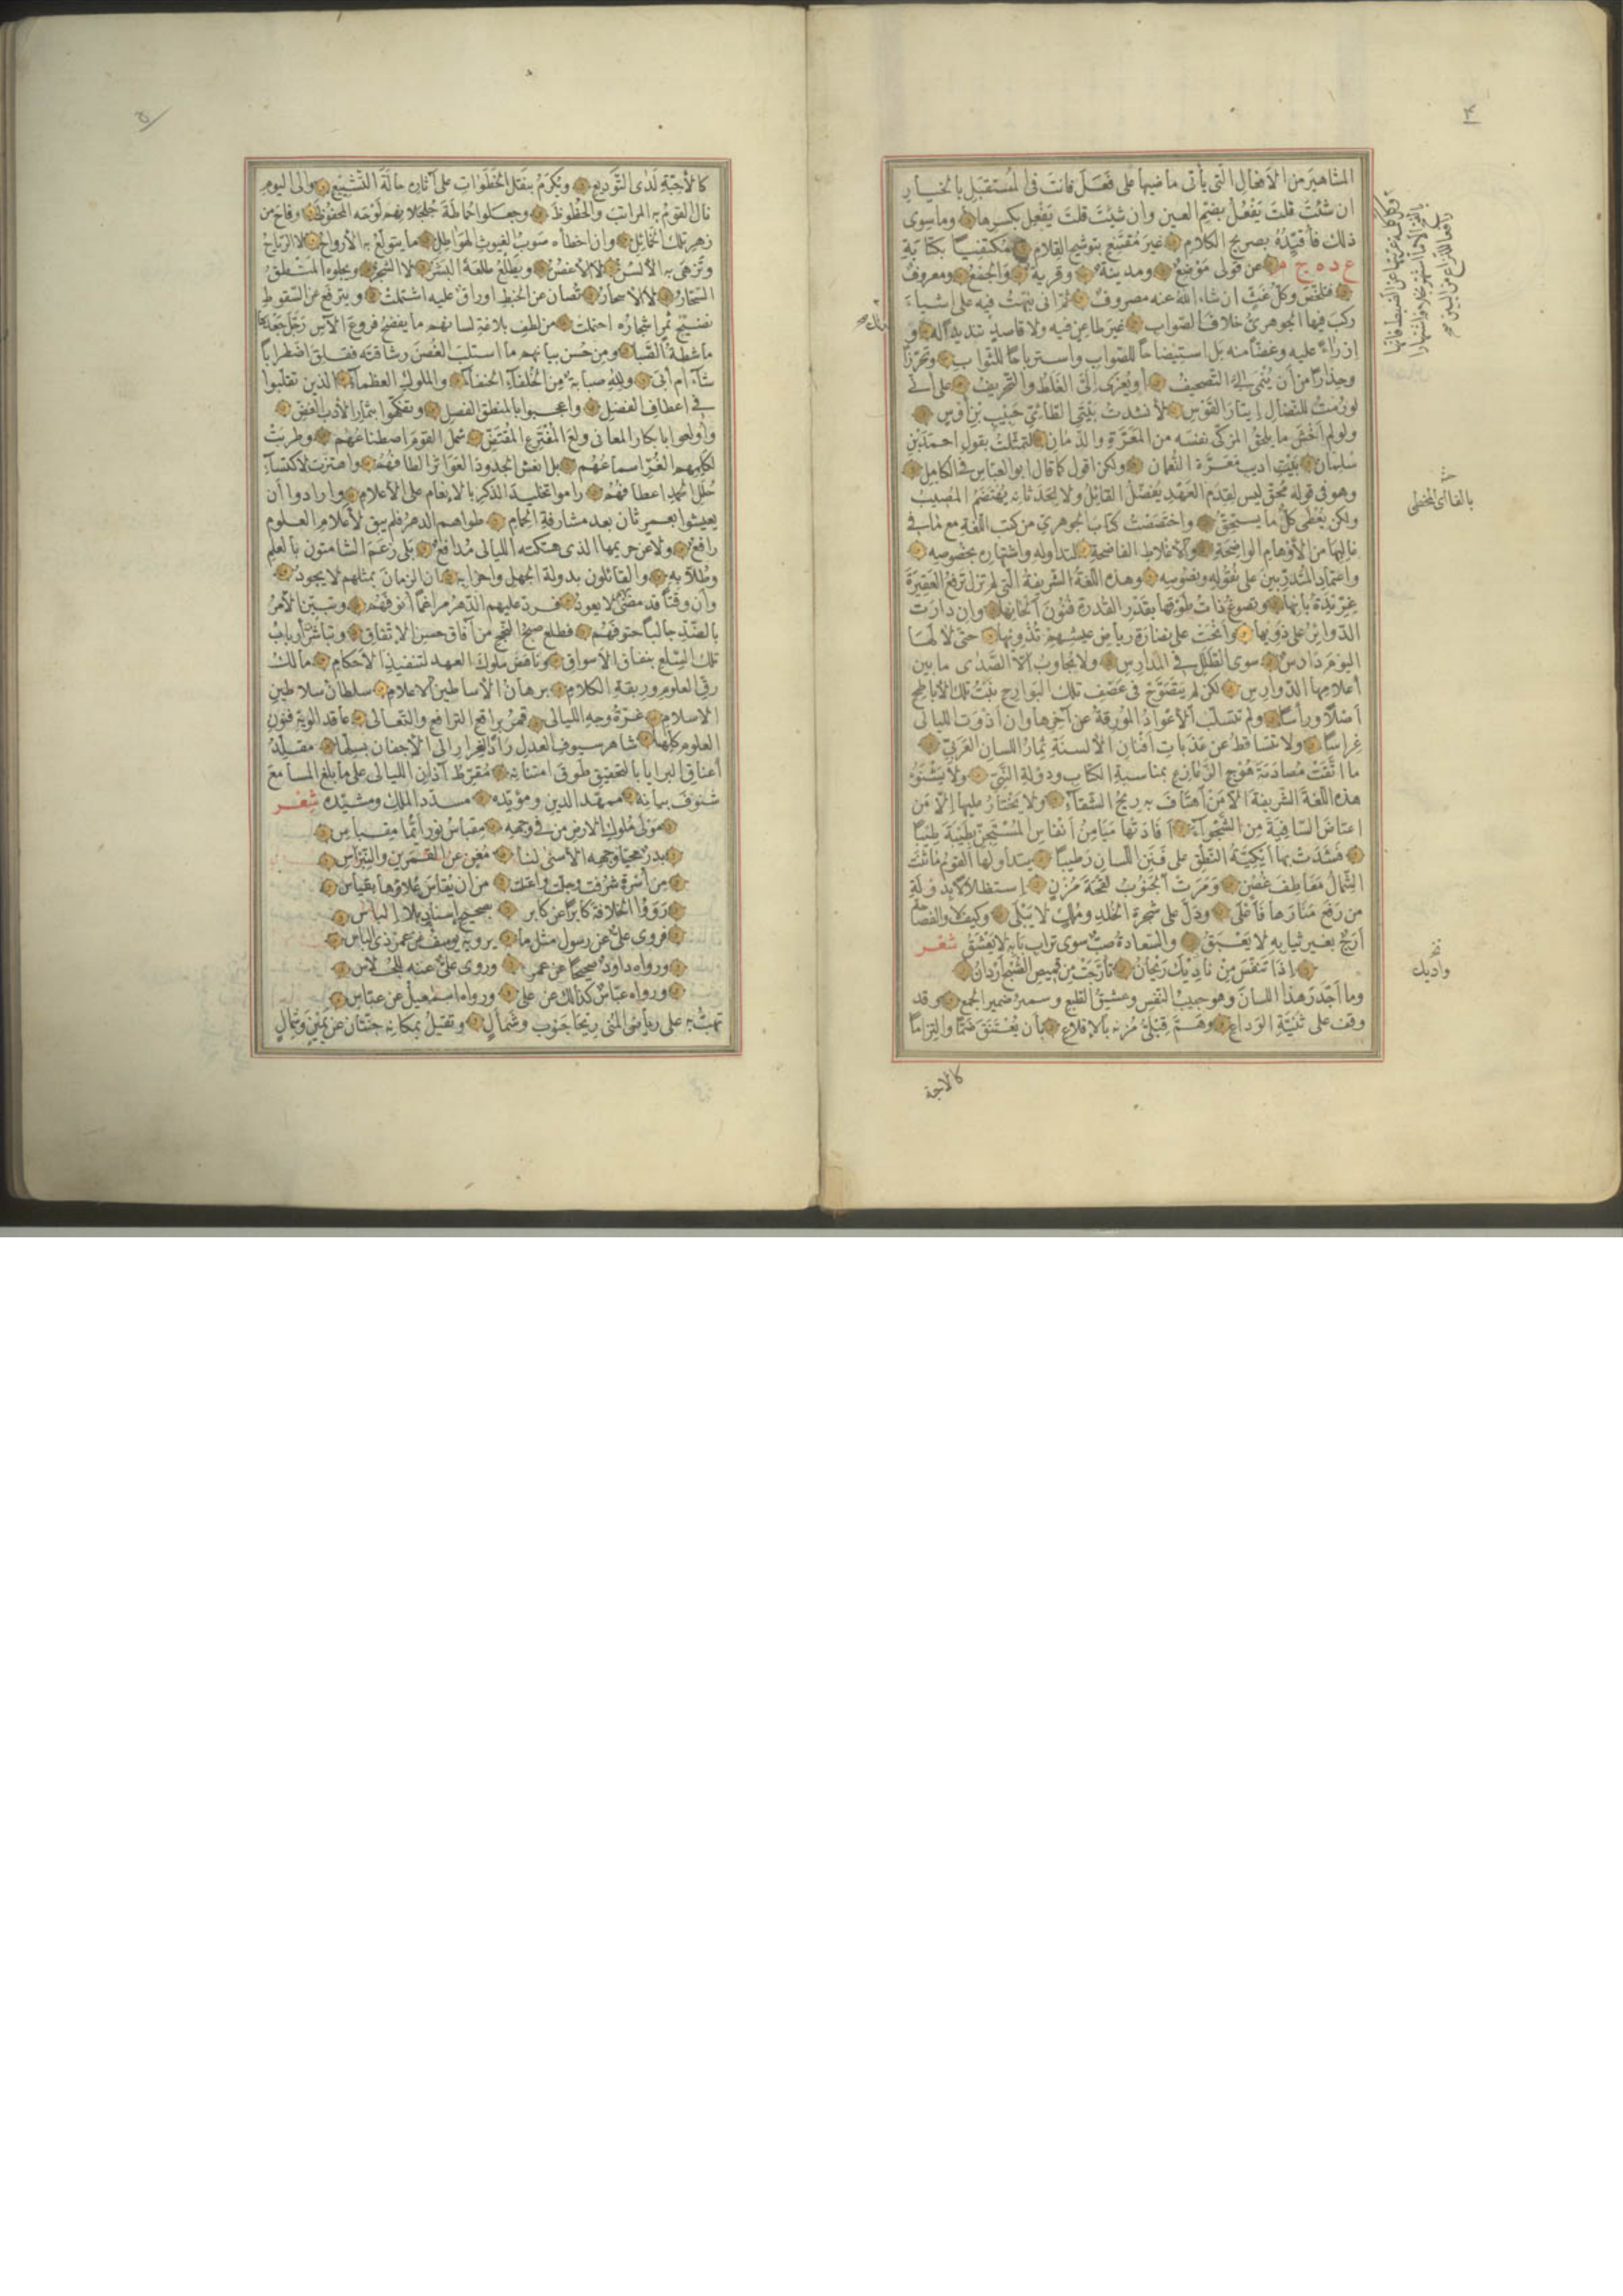 ٤
المشاهير من الافعال التى يأتى ماضيها على فَعَلَ فانت فى المُستقبَل بالخيار
ان شئتَ قلتَ يَفْعُلُ بضم العين وان شئتَ قلتَ يَفْعِل بكسرها وما سوى
ذلك فأقيّدُه بصريح الكلام غيرَ مُقتَنِعٍ بتوشيح القِلام مُكتفياً بكتابة
ع د ه ج م عن قولى مَوْضِعٌ ومدينة وقرية والجمعُ ومعروفٌ
فتلخّصَ وكلُّ غَثٍّ ان شاء اللهُ عنه مصروفٌ ثمّ انى نبّهتُ فيه على اشياءَ
ركبَ فيها الجوهرىُّ خلافَ الصّواب غيرَ طاعنٍ فيه ولا قاصدٍ تنديداً له و
إزراءً عليه وغَضّاً منه بل استيضاحاً للصواب واسترباحاً للثواب وتحرّزاً
وحِذاراً من أن يُنْمَى الىّ التصحيف أو يُعْزَى إلىَّ الغَلَطُ والتّحريفُ على أنى
لو رُمتُ للنّضال إيتارَ القَوْس لأنشدتُ بَيْتَىِ الطائىّ حَبيبِ بْنِ أوْسٍ
ولو لم أخْشَ ما يلحقُ المُزكّى نفسَه من المَعَرّة والدَّمان لتمثّلتُ بقول احمدَ بْنِ
سليمان أديب مَعَرّة النّعمان ولكن اقول كما قال ابو العباس فى الكامل
وهو فى قوله مُحِقّ ليس لقِدَم العَهْدِ يُفَضّلُ القائلُ ولا لحِدْثانه يُهْتَضَمُ المُصيبُ
ولكن يُعْطَى كلٌّ ما يستحقُّ واختَصَصْتُ كتابَ الجوهرىّ من كتب اللّغةِ مع ما فى
غالبها من الأوهام الواضحةِ والأغلاط الفاضحةِ لتداوله واشتهاره بخصوصه
واعتمادِ المُدَرِّسين على نُقُوله ونصوصه وهذه اللّغةُ الشريفةُ التى لم تزل ترفعُ العَقيرةَ
غِرّيدةُ بانها وتصوغُ ذاتُ طَوْقِها بقَدْر القُدرة فُنُونَ ألحانِها وان دارَتِ
الدوائرُ على ذَوِيها وأنْحَتْ على نضارة رياض عيشهم تُذْوِيها حتّى لا لها
اليومَ دارسٌ سوى الطَّلَلِ فى المدارس ولا مُجاوِبٌ إلاّ الصَّدَى ما بين
أعلامِها الدّوارس لكن لم يَتَصَوَّحْ فى عَصْفِ تلك البَوارِح نبتُ تلك الأباطح
أصلاً ورأساً ولم تُسْتَلَبِ الأعْوادُ المُورِقةُ عن آخرِها وان أذْوَتِ الليالى
غِراساً ولا تتساقطُ عن عَذَبات أفنانِ الألسنةِ ثمارُ اللسانِ العَرَبىّ
ما اتَّقَتْ مُصادَمةَ هُوجِ الزَّعازعِ بمناسبةِ الكتابِ ودَوْلةِ النّبىّ ولا يَشْنَؤُ
هذه اللّغةَ الشريفةَ الاّ مَنِ اهتافَ به ريحُ الشّقاء ولا يختارُ عليها إلاّ مَنِ
اعتاضَ السّافيةَ من الشَّحْواءِ أفادَتْها مَيامِنُ أنفاسِ المُسْتَجِنّ بطَيْبةَ طِيباً
فشَدَتْ بها أيكيّةُ النّطقِ على فَنَنِ اللسانِ رَطيباً يتداولُها القومُ ما ثَنَت
الشَّمالُ مَعاطِفَ غُصْنٍ ومَرَتِ الجَنُوبُ لِقْحةَ مُزْنٍ استظلالاً بدَوْلةِ
من رَفَع مَنارَها فأعْلَى ودَلَّ على شجرةِ الخُلدِ ومُلكٍ لا يَبْلَى وكيفَ لا والفصاحةُ
أرَجٌ بغير ثيابه لا يَعْبَقُ والسّعادةُ صبٌّ سوى تُراب بابه لا يَعْشَقُ شعر
إذا تنفّسَ مِن ناديكَ رَيْحانٌ تأرَّجَتْ مِن قميصِ الصُّبْحِ أرْدانُ
وما أجْدَرَ هذا اللسانَ وهو حبيبُ النّفسِ وعشيقُ الطّبعِ وسميرُ ضميرِ الجمع وقد
وقفَ على ثَنيّةِ الوَداعِ وهَمَّ قِبْلىُّ مُزْنِه بالإقلاع بأن يُعْتَنَقَ ضَمّاً والتِزاماً
كالاحبة
٥
كالأحِبّةِ لَدَى التَّوديع ويُكْرَمَ بنَقْلِ الخُطُواتِ على آثاره حالةَ التّشييع والى اليومِ
نالَ القومُ به المراتبَ والحُظوظَ وجعلوا حَماطةَ جُلجُلانِهم لَوْحَه المحفوظَ وفاحَ من
زَهْرِ تلك الخمائل وان أخطأه صَوْبُ الغيوثِ الهَواطل ما يتولّعُ به الأرواحُ لا الرياحُ
وتُزْهَى به الألسُنُ لا الأغصُنُ ويُطْلِعُ طَلْعَه البَشَرُ لا الشجرُ ويجلوه المَنْطِقُ
السّحّارُ لا الأسحارُ تُصانُ عن الخبطِ اوراقٌ عليه اشتملتْ ويترفّعُ عن السّقوطِ
نضيجُ ثَمَرٍ أشجارُه احتملتْ من لُطفِ بلاغةِ لسانهم ما يفضحُ فروعَ الآسِ رَجَّلَ جَعْدَها
ماشِطةُ الصَّبا ومن حُسنِ بيانِهم ما استلبَ الغُصنَ رشاقتَه فقلقَ اضطراباً
شاءَ أم أبَى وللهِ صُبابةٌ من الخلفاءِ الحنفاءِ والملوكِ العظماءِ الذين تقلّبوا
فى أعطافِ الفضلِ وأعجبوا بالمنطقِ الفصلِ وتفكّهوا بثمارِ الأدبِ الغضِّ
وأولعوا بأبكارِ المعانى ولَعَ المُفْتَرِعِ المُفْتَضّ شملَ القومَ اصطناعُهم وطرِبتْ
لكَلِمِهم الغُرِّ أسماعُهم بل أنعشَ الجدودَ العَواثرَ ألطافُهم واهتزّت لاكتساءِ
حُلَلِ الحمدِ أعطافُهم راموا تخليدَ الذكرِ بالإنعامِ على الأعلامِ وأرادوا أن
يعيشوا بعمرٍ ثانٍ بعد مشارفةِ الحِمامِ طواهم الدهرُ فلم يبقَ لأعلامِ العلومِ
رافعٌ ولا عن حريمها الذى هتكته الليالى مُدافعٌ بلى زعَمَ الشامتون بالعلمِ
وطُلاّبِه والقائلون بدولةِ الجهلِ وأحزابه أن الزمانَ بمثلهم لا يجودُ
وأن وقتاً قد مضى بهم لا يعودُ فردّ عليهم الدهرُ مراغماً أنوفَهُم وتبيّنَ الأمرُ
بالضّدّ جالباً حتوفَهُم فطلع صبحُ النُّجحِ من آفاقِ حسنِ الاتفاقِ وتباشرَتْ أربابُ
تلك السِّلَعِ بنفاقِ الأسواقِ وناهضَ ملوكَ العهدِ لتنفيذِ الأحكامِ مالكُ
رقِّ العلومِ ورِبقةِ الكلامِ برهانُ الأساطينِ الأعلامِ سلطانُ سلاطينِ
الاسلامِ غرّةُ وجهِ الليالى قمرُ براقعِ الترافعِ والتّعالى عاقدُ ألويةِ فنونِ
العلومِ كلِّها شاهرُ سيوفِ العدلِ رَدَّ الغِرارَ الى الأجفانِ بسَلِّها مقلِّدُ
أعناقِ البرايا بالتحقيقِ طوقَ امتنانِه مُقرّطُ آذانِ الليالى على ما بلغَ المسامعَ
شُنوفَ بيانِه ممهّدُ الدينِ ومؤيّده مسدّدُ الملكِ ومشيّده شعر
مَوْلى مُلوكِ الارضِ من فى وجهه مِقباسُ نورٍ أيّما مِقباسِ
بدرٌ محيّا وجههِ الأسنى لنا مُغنٍ عن القمرينِ والنّبراسِ
من أُسْرةٍ شرُفت وجلّت واعتلت من أن يُقاسَ علاؤها بقياسِ
رَوَوُا الخلافةَ كابراً عن كابرٍ بصحيحِ إسنادٍ بلا إلباسِ
فروى علىٌّ عن رسولٍ مثلَ ما يرويه يوسفُ عن عمرَ ذى الباسِ
ورواه داودٌ صحيحاً عن عمرَ وروى علىٌّ عنه للجُلاّسِ
ورواه عبّاسٌ كذلك عن على ورواه اسمعيلُ عن عبّاسِ
تهبُّ به على رياضِ المُنى ريحا جَنوبٍ وشَمالٍ وتَقيلُ بمكانِه جنّتانِ عن يمينٍ وشِمالٍ